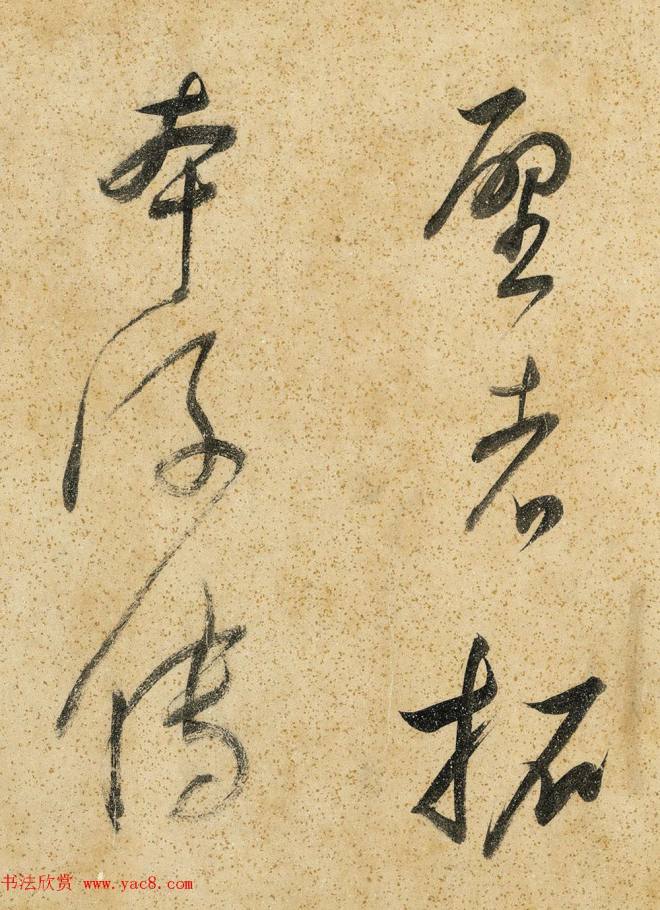 者拓
本得傳
书法欣赏 www.yac8.com